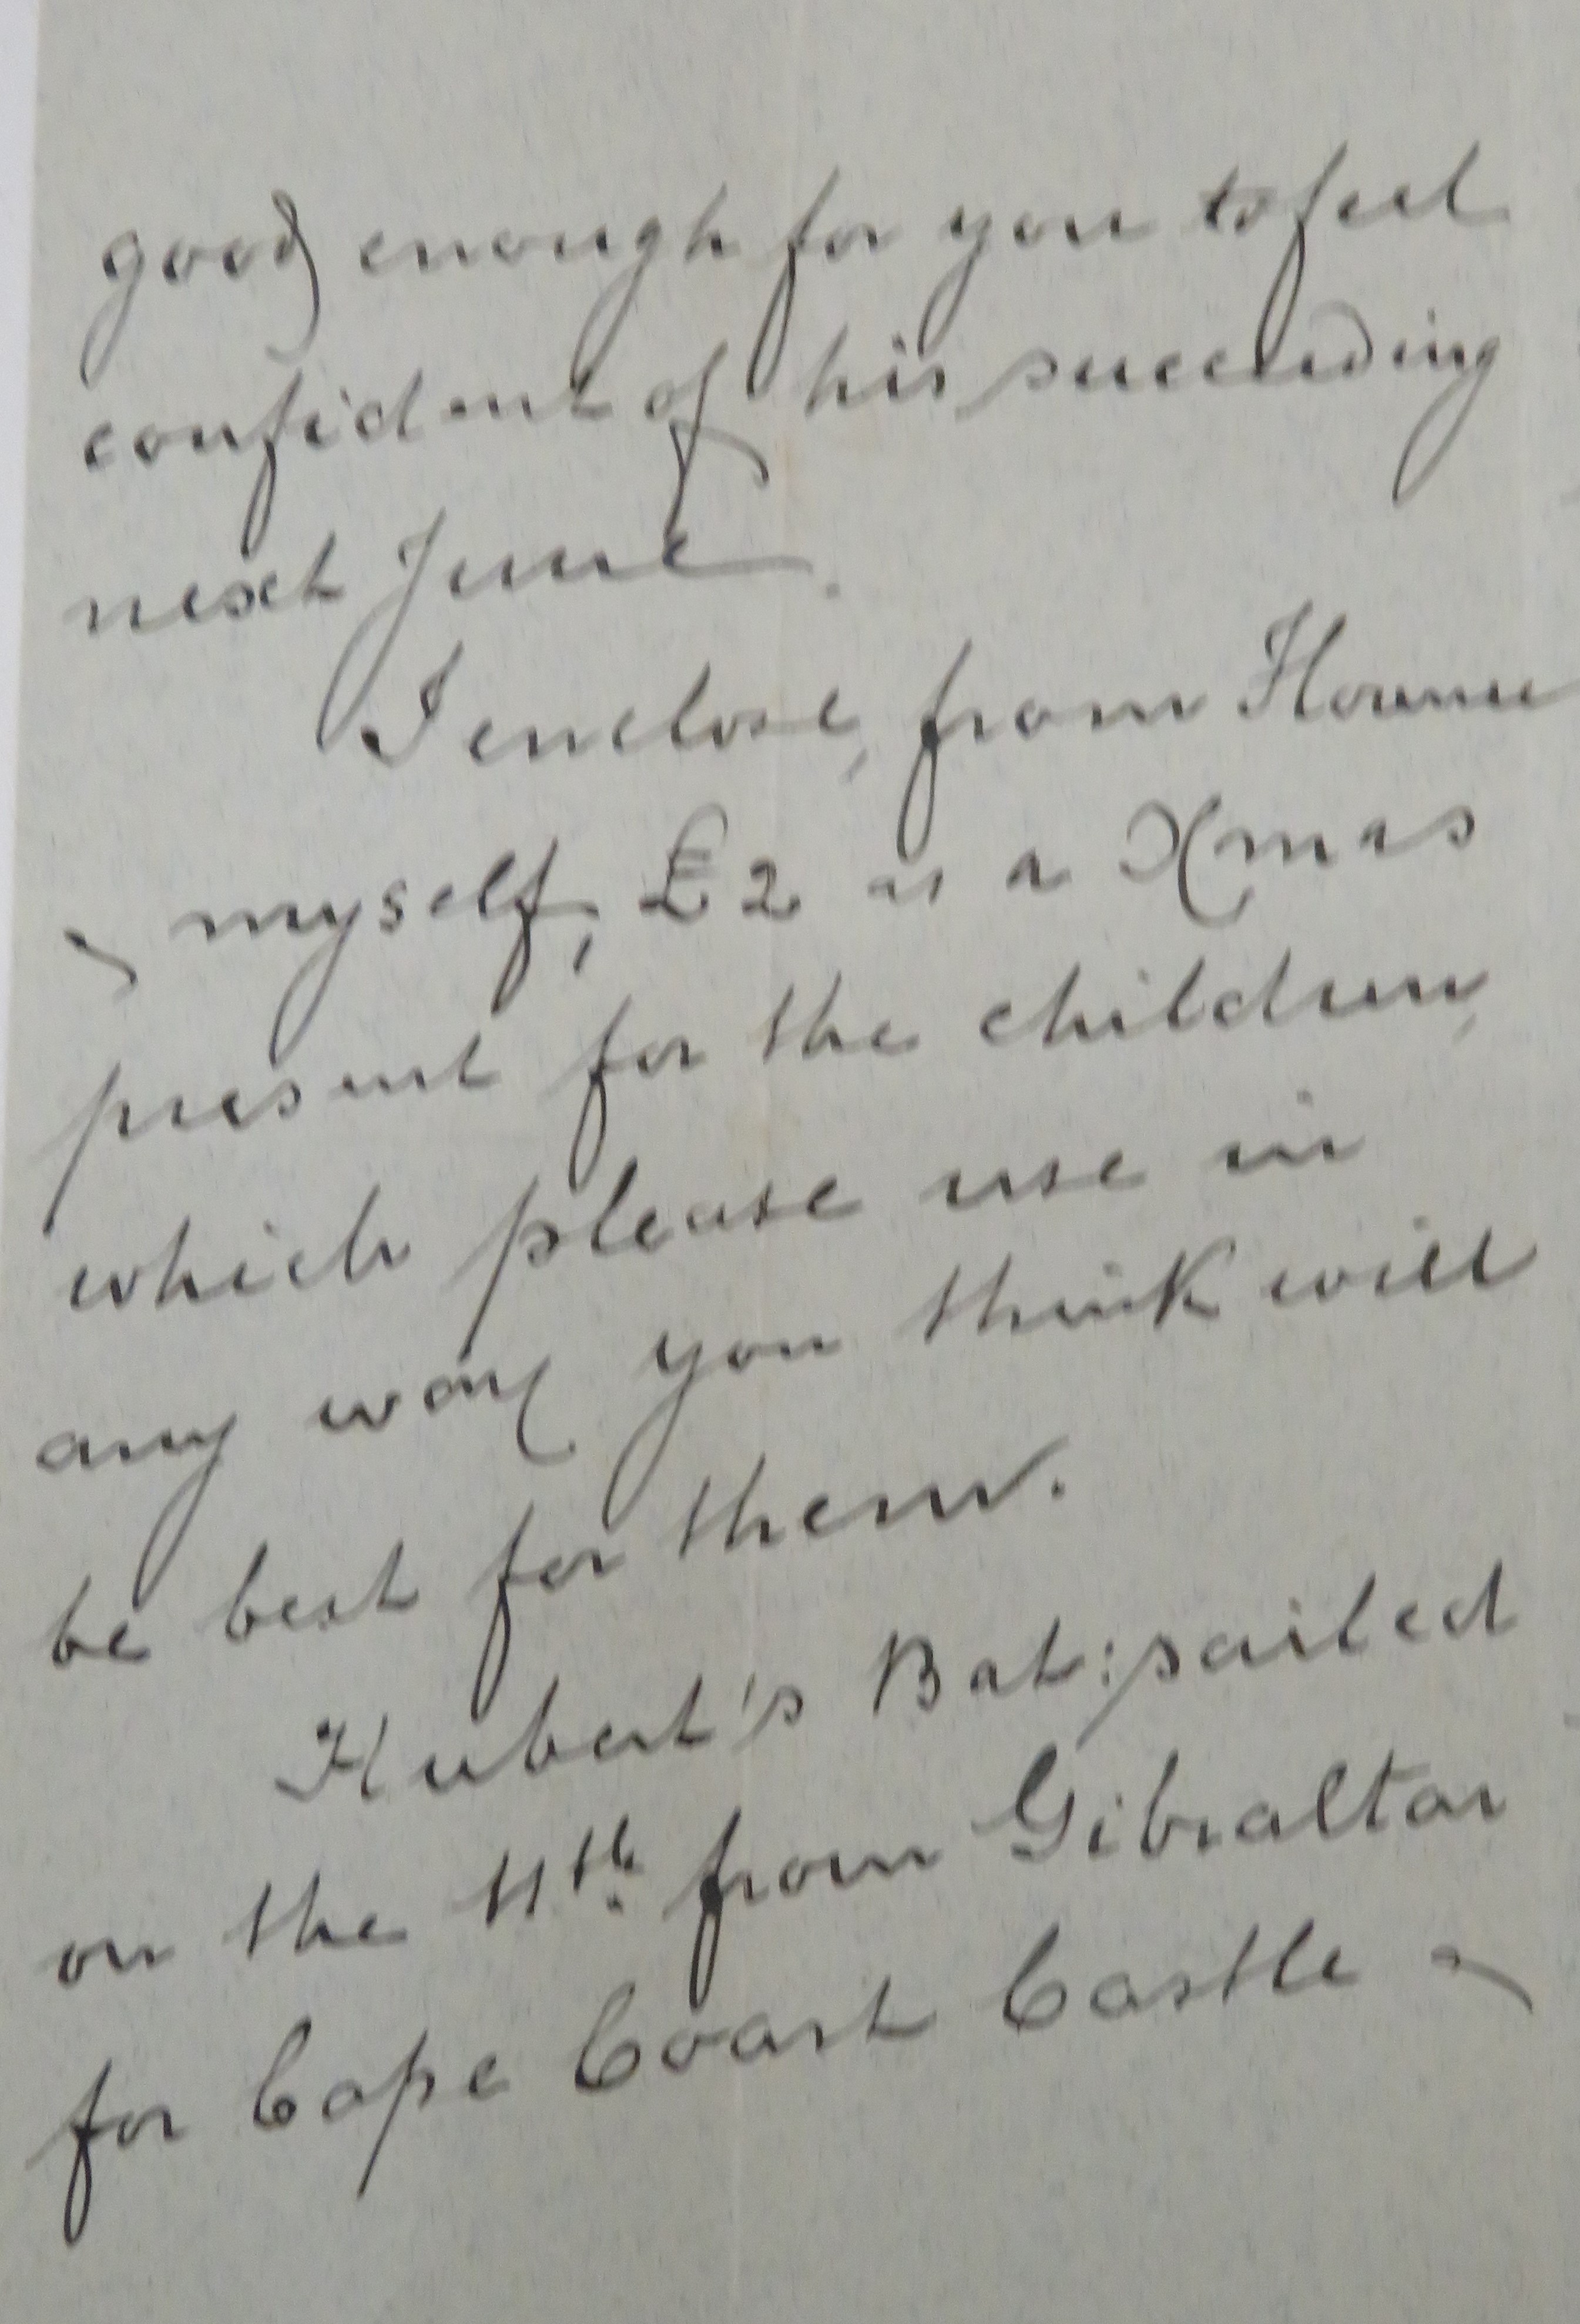 good enough for you to feel
confident of his succeeding
next June.
I enclose, from Florence
& myself, £2 as a Xmas
present for the children,
which please use in
any way you think will
be best for them.
Hubert's Bat: sailed
on the 11th. from Gibraltar
for Cape Coast Castle &